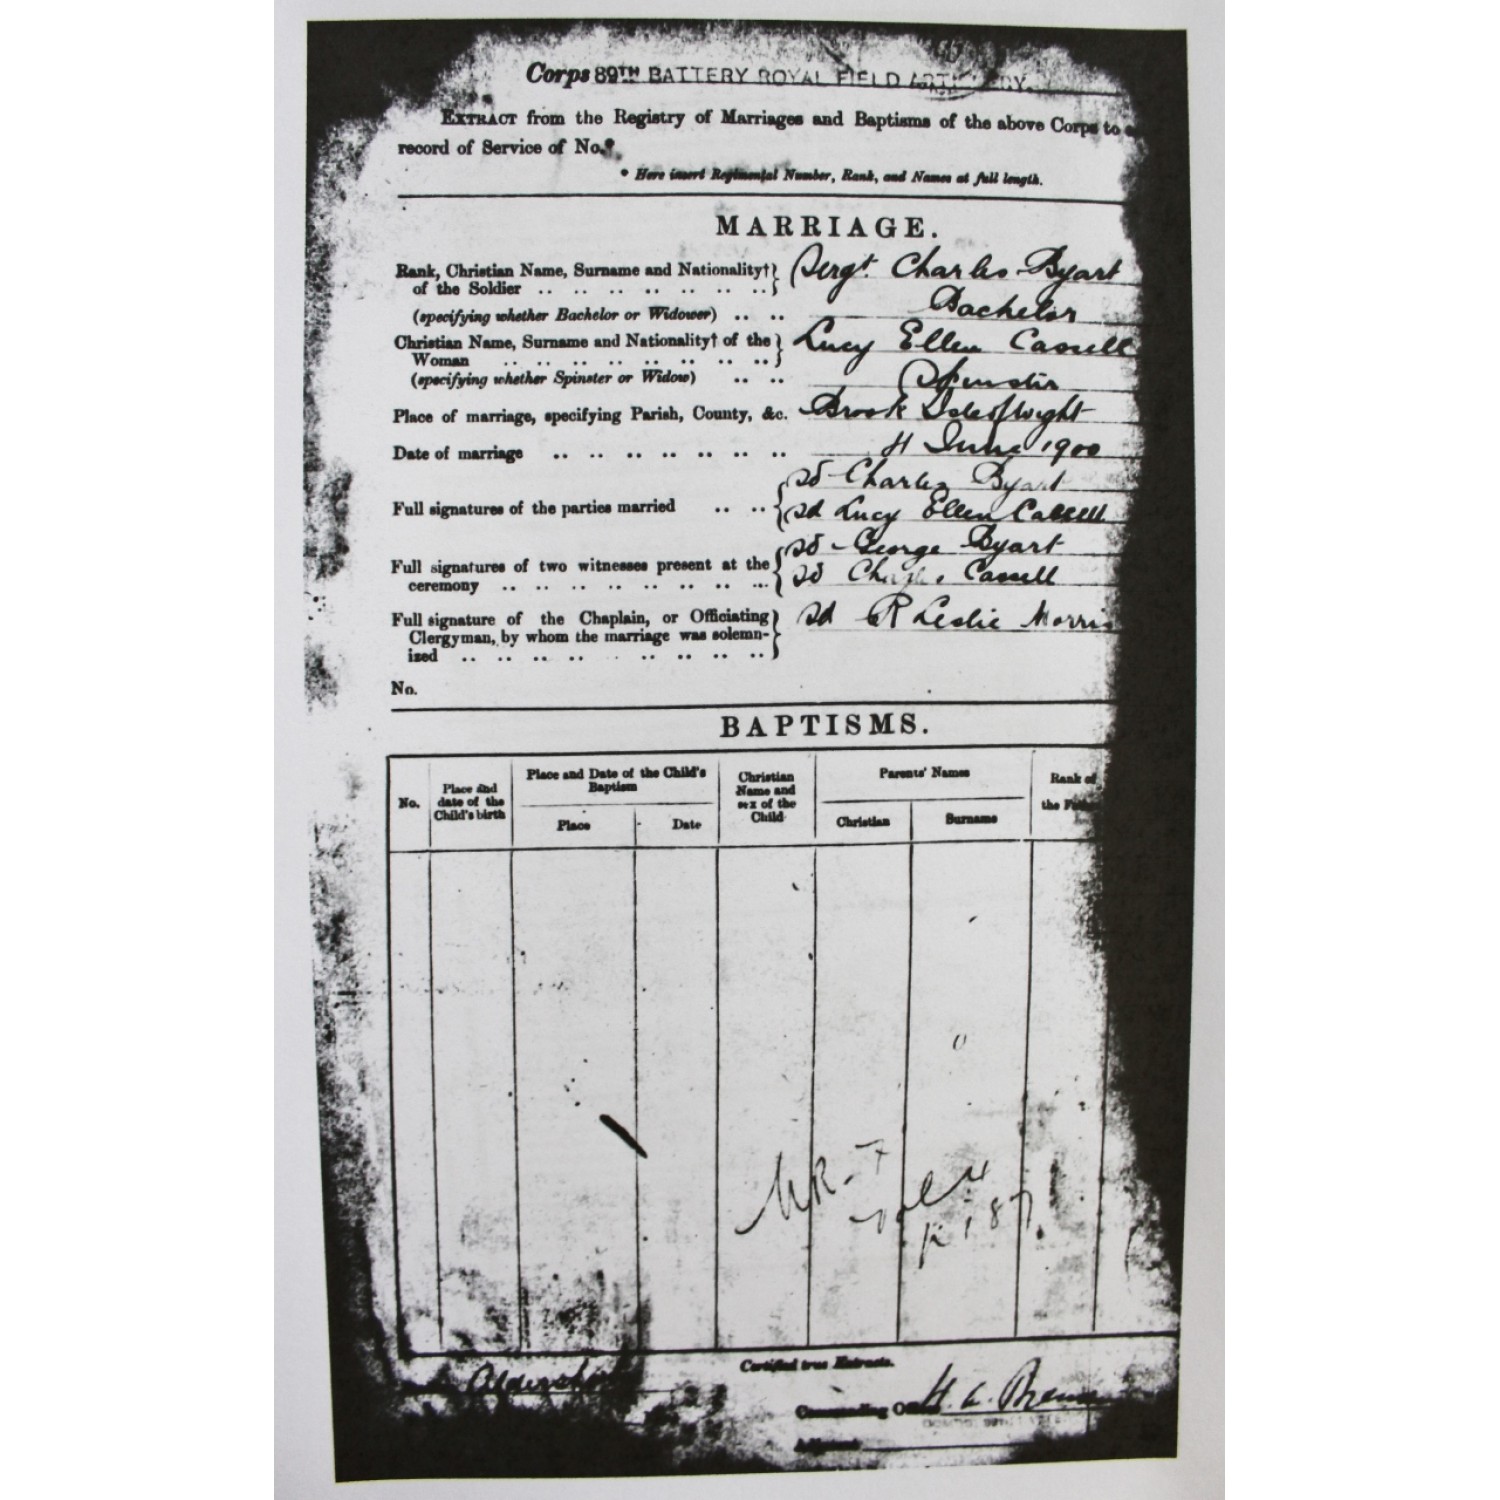 Corps 89TH BATTERY ROYAL FIELD ARTILLERY.
EXTRACT from the Registry of Marriages and Baptisms of the above Corps to
record of Service of No.*
* Here insert Regimental Number, Rank, and Names at full length.
MARRIAGE.
Rank, Christian Name, Surname and Nationality† of the Soldier .. .. .. .. .. .. .. Sergt Charles Byart
(specifying whether Bachelor or Widower) .. .. Bachelor
Christian Name, Surname and Nationality† of the Woman .. .. .. .. .. .. .. .. Lucy Ellen Cassell
(specifying whether Spinster or Widow) .. .. Spinster
Place of marriage, specifying Parish, County, &c. Brook Isle of Wight
Date of marriage .. .. .. .. .. .. .. June 1900
Full signatures of the parties married .. .. sd Charles Byart
sd Lucy Ellen Cassell
Full signatures of two witnesses present at the ceremony .. .. .. .. .. .. .. ... sd George Byart
sd Charles Cassell
Full signature of the Chaplain, or Officiating Clergyman, by whom the marriage was solemnized .. .. .. .. .. .. .. .. sd R Leslie Morris
No.
BAPTISMS.
No.
Place and date of the Child's birth
Place and Date of the Child's Baptism
Place
Date
Christian Name and sex of the Child
Parents' Names
Christian
Surname
Rank of the Father
Certified true Extracts.
Aldershot
Commanding Officer H. A.
Adjutant